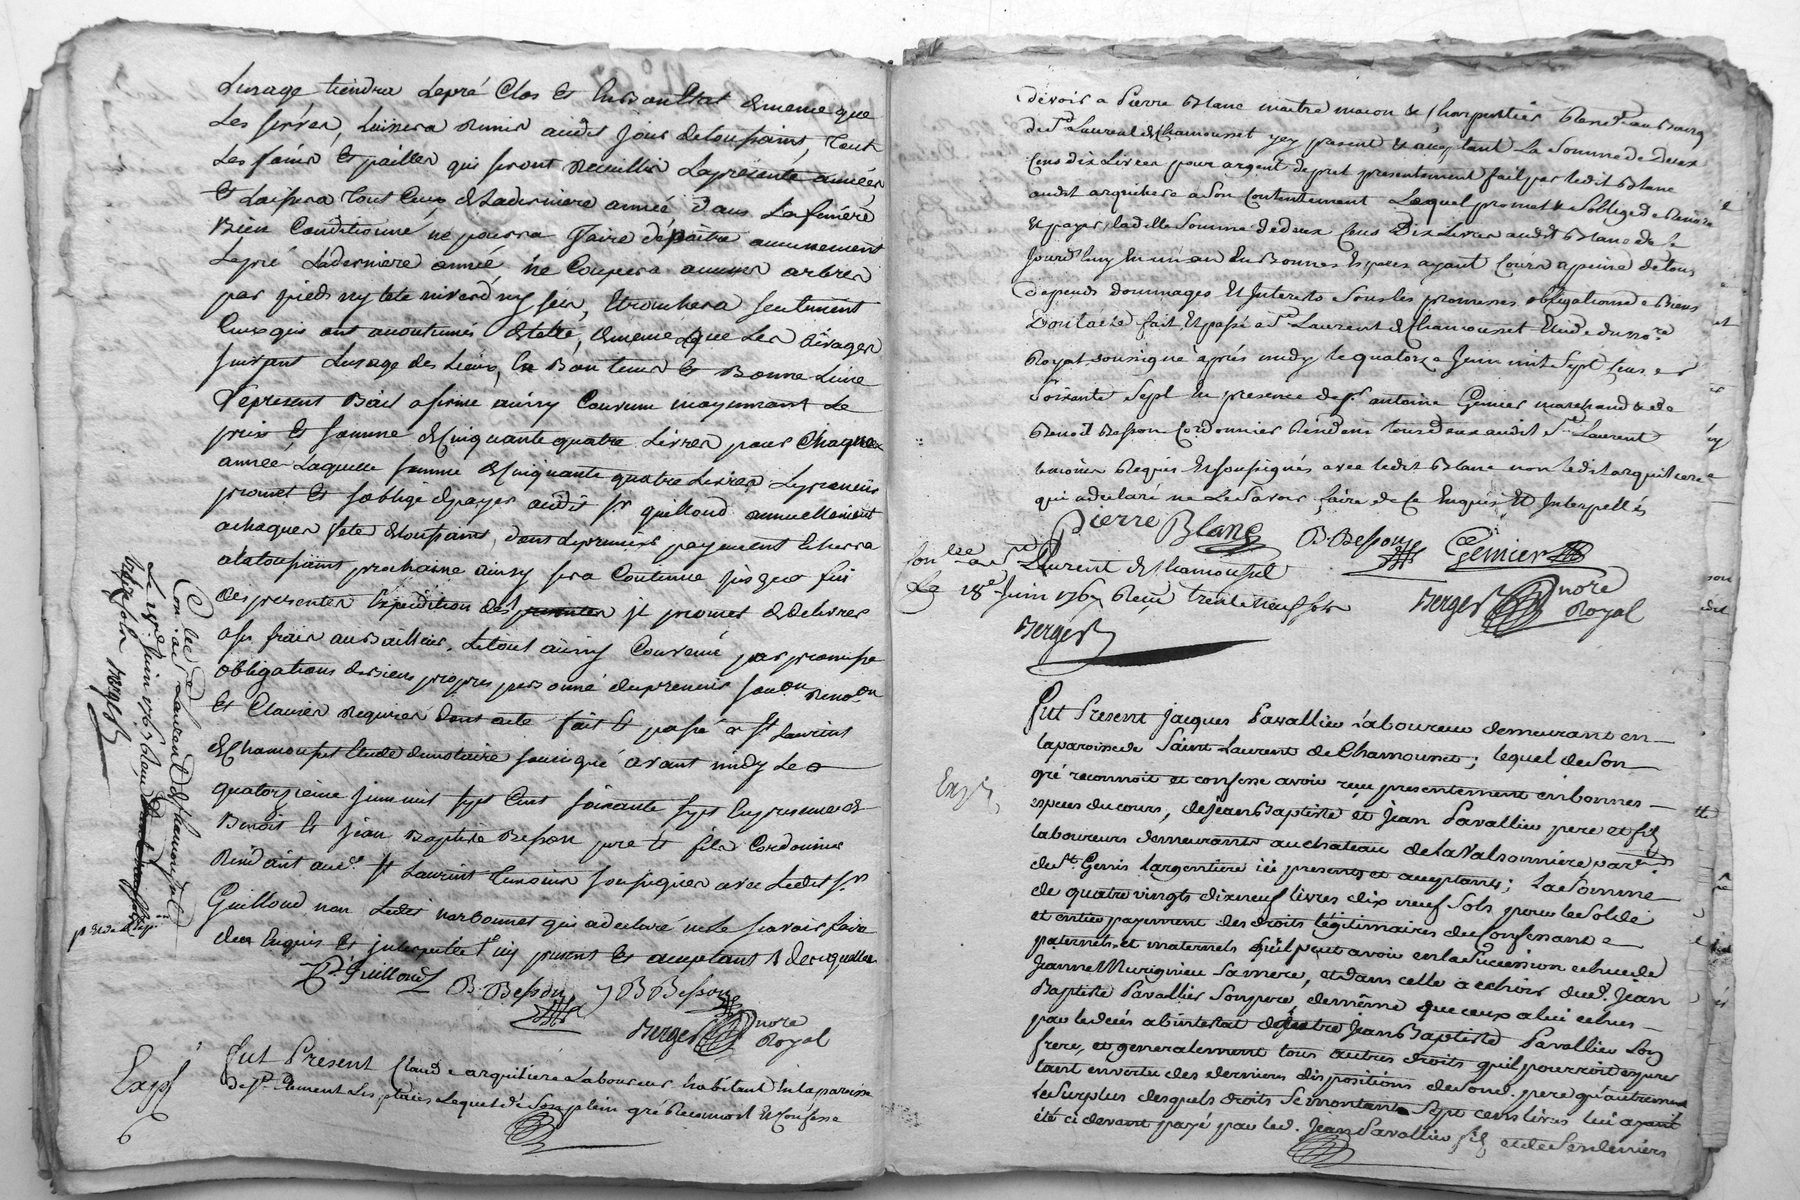 Lusage tiendra Lepré Clos Et En Bon Etat de meme que
Les serres, Laissera Remis audit jour de toussaint, tout
Les foins Et pailles qui seront Recuillis La presente année
Et Laissera tout Ceux de La derniere année, dans La feniere
Bien Conditionné ne pourra faire depaitre aucunement
Lepré La derniere année ne Coupera aucuns arbres
par pieds ny tete niverd ny sec, Ebranchera seulement
Ceux qui ont acoutumés Estre, de meme que Les
suivant Lusage des Lieux, En Bon tems Et Bonne Lune
Le present Bail a ferme ainsy Convenu moyennant Le
prix Et somme de Cinquante quatre Livres pour Chaque
année Laquelle somme de Cinquante quatre Livres Le preneur
promet Et soblige de payer audit sr guilloud annuellement
achaques fete de toussaint, dont Le premier payement Echerra
alatoussaint prochaine ainsy sera Continué jusques fin
des presentes Expedition des presentes il promet de delivrer
a ses frais au Bailleur, Letout ainsy Convenu par promesse
obligations de Biens propres personne du preneur soumon Renon
Et Clauses Requises dont acte fait Et passé a st Laurent
de Chamousset Etude du notaire soussigné avant midy Le
quatorzieme juin mil sept Cent soixante sept En presence de
Benoit Et jean Baptiste Besson pere Et fils Cordonnier
Residant aud. st Laurent temoins soussignés avec Ledit sr
Guilloud, non Ledit narbonnet qui a declaré ne Le savoir faire
de ce Enquis Et interpellé
P. Guilloud B. Besson J B Besson
Berger nore
Royal
Con. a st Laurent de Chamousset
Le 18e Juin 1767 Reçu
Berger
Exp.
Fut Present Claude arquilliere Laboureur habitant En la paroisse
de st Clement Les places Lequel de Son plein gré Reconnoit Et Confesse
devoir a Pierre Blanc maitre macon & Charpentier Resid. au Bourg
de St Laurent de Chamousset icy present & aceptant La Somme de Deux
Cens dix Livres pour argent de pret presentement fait par ledit Blanc
audit arquiliere a Son Contentement Lequel promet & Soblige de Rendre
Et payer ladite Somme de deux Cens Dix Livres audit Blanc de Ce
Jourdhuy En un an En Bonnes Especes ayant Cours a peine de tous
depends dommages Et Interets Sous les promesses obligations de Biens
Dont acte fait Et passé a St Laurent de Chamousset Etude du nore
Royal soussigné aprés midy le quatorze Juin mil Sept Cens
Soixante Sept En presence de Sr antoine Genier marchand & de
Benoit Besson Cordonnier Résidens tous deux audit St Laurent
temoins Requis Et Soussignés avec ledit Blanc non ledit arquiliere
qui a declaré ne Le Savoir faire de Ce Enquis Et Interpellés
Pierre Blanc B. Besson Genier
Con. a St Laurent de Chamousset
Le 18e Juin 1767 Reçu trente neuf sols
Berger
Berger nore
Royal
Exp.
Fut Present Jacques Pavallier Laboureur demeurant en
la paroisse de Saint Laurent de Chamousset; lequel de Son
gré reconnoit et confesse avoir reçu presentement en bonnes
especes du cours, de jean Baptiste et Jean Pavallier pere et fils
laboureurs demeurants au chateau de la Valsonniere par.
de St Genis Largentiere ici presents et aceptants; La Somme
de quatre vingts dix neuf livres dix neuf sols pour le Solde
et entier payement des droits Légitimaires du Confessant
paternels et maternels qu'il peut avoir en la Succession echue de
Jeanne Murigneu Sa mere, et dans celle a echoir dud. Jean
Baptiste Pavallier Son pere, de même que ceux a lui echus
par le decés abintestat de autre Jean Baptiste Pavallier Son
frere, et generalement tous autres droits quil pourroit esperer
tant en vertu des dernieres dispositions de Sond. pere qu'autrement
le Surplus desquels droits Se montant a Sept cens livres lui ayant
été ci devant payé par led. Jean Pavallier fils et de Ses deniers